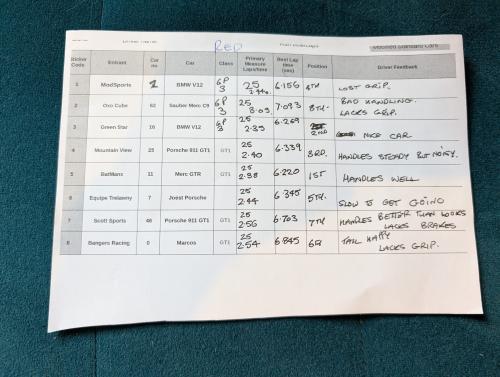 RED
Modified Standard Cars
Sticker Code Entrant Car no Car Class Primary Measure Laps/time Best Lap time (sec) Position Driver Feedback
1 ModSports 1 BMW V12 GP 3 25 2.44 6.156 4TH LOST GRIP.
2 Oro Cube 62 Sauber Merc C9 GP 3 25 3.03 7.093 8TH. BAD HANDLING. LACKS GRIP.
3 Green Star 16 BMW V12 GP 3 25 2.39 6.269 2ND NICE CAR
4 Mountain View 25 Porsche 911 GT1 GT1 25 2.40 6.339 3RD. HANDLES STEADY BUT NOISY.
5 BatMans 11 Merc GTR GT1 25 2.38 6.220 1ST HANDLES WELL
6 Equipe Trelawny 7 Joest Porsche GT1 25 2.44 6.345 5TH. SLOW TO GET GOING
7 Scott Sports 46 Porsche 911 GT1 GT1 25 2.56 6.703 7TH HANDLES BETTER THAN LOOKS LACKS BRAKES
8 Bangers Racing 0 Marcos GT1 25 2.54 6.845 6TH TAIL HAPPY LACKS GRIP.